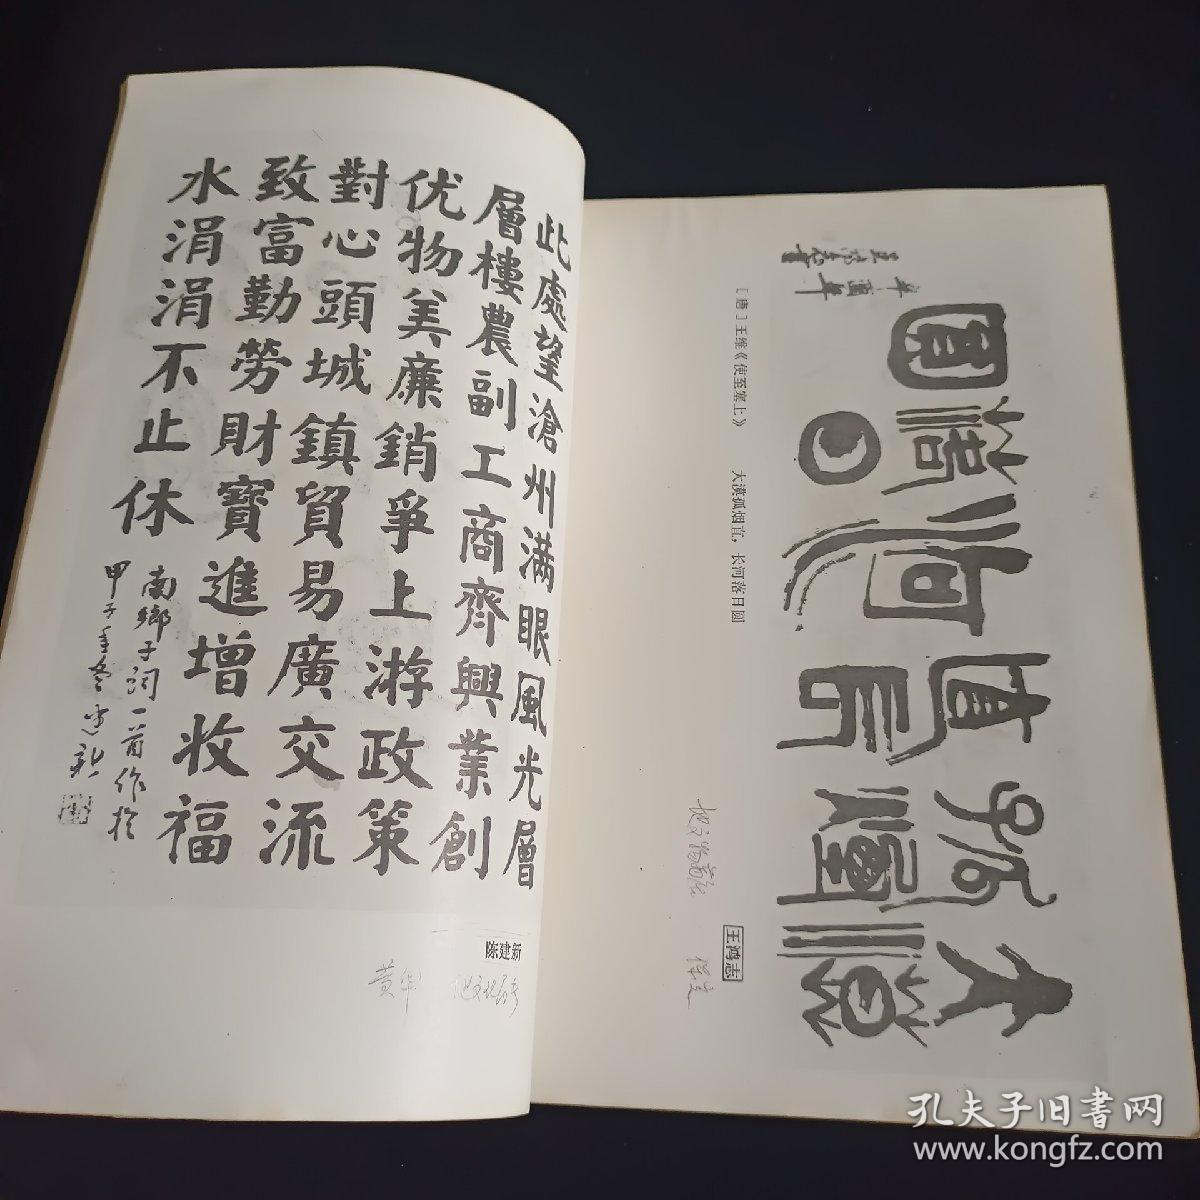 此處望滄州满眼風光層
層樓農副工商齊興業創
优物美廉銷爭上游政策
對心頭城鎮貿易廣交流
致富勤勞財寶進增收福
水涓涓不止休
南鄉子詞一首作於
甲子年冬建新
陈建新
黄华
地文化局
大漠孤煙
直長河落
日圓
[唐]王维《使至塞上》 大漠孤烟直，长河落日圆
王鸿志
孔夫子旧书网
www.kongfz.com